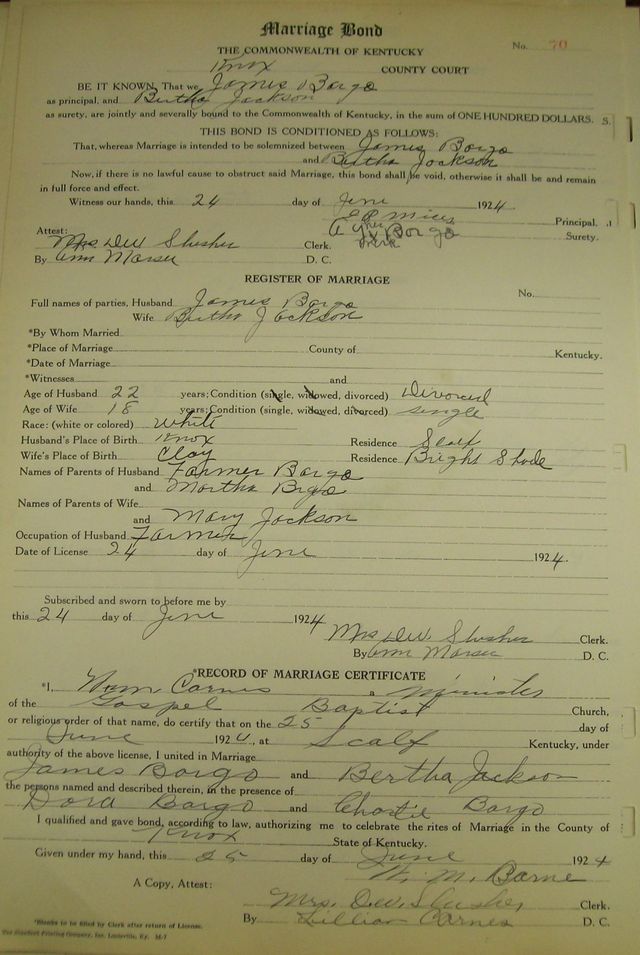 Marriage Bond
THE COMMONWEALTH OF KENTUCKY
No. 70
Knox COUNTY COURT
BE IT KNOWN, That we James Bargo
as principal, and Bertha Jackson
as surety, are jointly and severally bound to the Commonwealth of Kentucky, in the sum of ONE HUNDRED DOLLARS. S.
THIS BOND IS CONDITIONED AS FOLLOWS:
That, whereas Marriage is intended to be solemnized between James Bargo
and Bertha Jackson
Now, if there is no lawful cause to obstruct said Marriage, this bond shall be void, otherwise it shall be and remain
in full force and effect.
Witness our hands, this 24 day of June 1924.
Principal.
Attest: his x Bargo Surety.
Mrs D.W. Slusher Clerk. mark
By Ann D. C.
REGISTER OF MARRIAGE
No.
Full names of parties, Husband James Bargo
Wife Bertha Jackson
*By Whom Married
*Place of Marriage County of Kentucky.
*Date of Marriage
*Witnesses and
Age of Husband 22 years; Condition (single, widowed, divorced) Divorced
Age of Wife 18 years; Condition (single, widowed, divorced) single
Race: (white or colored) white
Husband's Place of Birth Knox Residence Scalf
Wife's Place of Birth Clay Residence Bright Shade
Names of Parents of Husband Farmer Bargo
and Martha Brgo
Names of Parents of Wife
and Mary Jackson
Occupation of Husband Farmer
Date of License 24 day of June 1924.
Subscribed and sworn to before me by
this 24 day of June 1924
Mrs D.W. Slusher Clerk.
By Ann D. C.
*RECORD OF MARRIAGE CERTIFICATE
*I, Wm Carnes a Minister
of the Gospel Baptist Church,
or religious order of that name, do certify that on the 25 day of
June 1924, at Scalf Kentucky, under
authority of the above license, I united in Marriage
James Bargo and Bertha Jackson
the persons named and described therein, in the presence of
Dora Bargo and Bargo
I qualified and gave bond, according to law, authorizing me to celebrate the rites of Marriage in the County of
Knox State of Kentucky.
Given under my hand, this 25 day of June 1924
W. M.
A Copy, Attest:
Mrs. D.W. Slusher Clerk.
By Lillian Carnes D. C.
*Blanks to be filled by Clerk after return of License.
The Standard Printing Company, Inc. Louisville, Ky. M-7